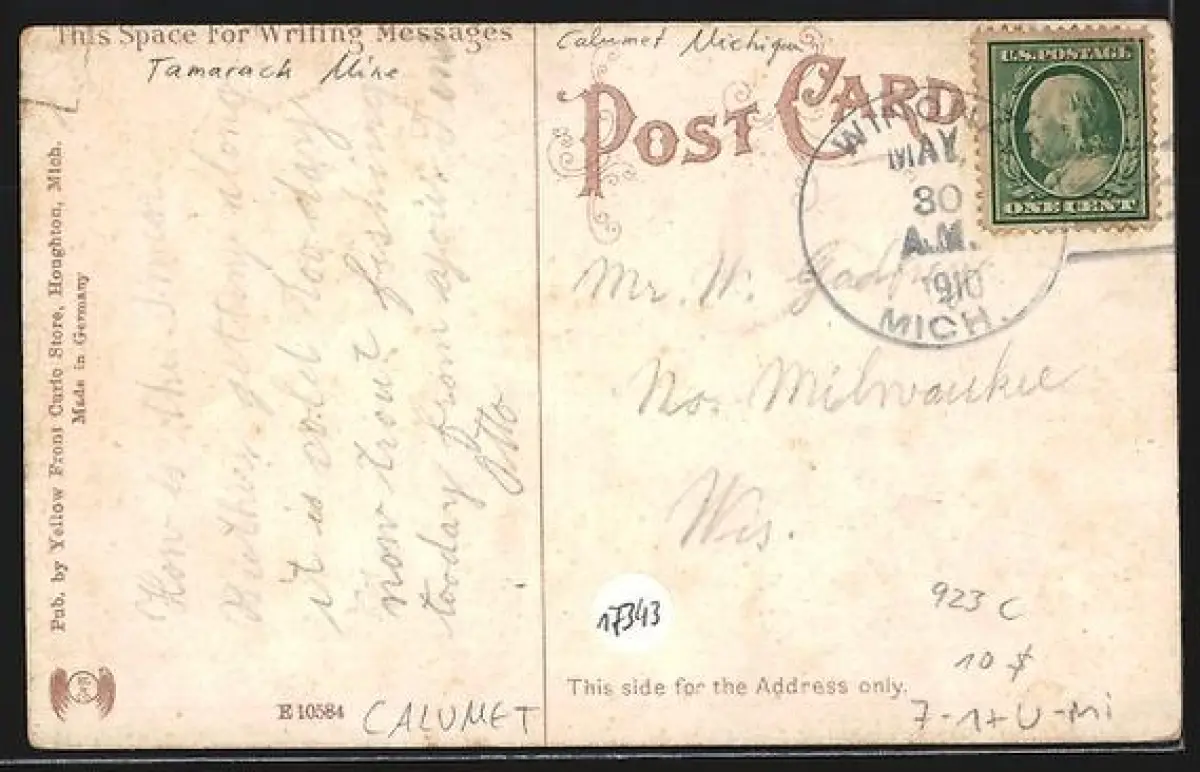 This Space For Writing Messages
Tamarach Mine
Calumet Michigan
POST CARD
U.S. POSTAGE
ONE CENT
MAY
30
A.M.
1910
MICH.
How is the
Brother getting along
it is cold too day
now trout fishing
tooday From your
Otto
Mr. W.
No. Milwaukee
Wis.
Pub. by Yellow Front Curio Store, Houghton, Mich.
Made in Germany
17343
923 C
10 $
This side for the Address only.
7-1+U-Mi
E 10584
CALUMET